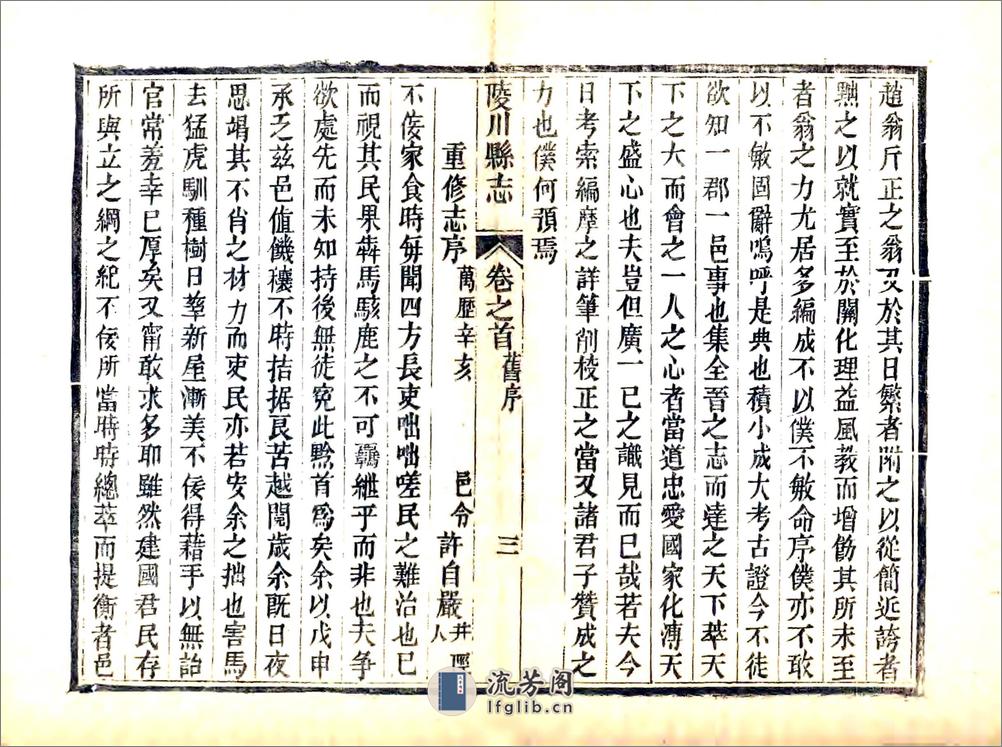 趙翁斤正之翁又於其日繁者附之以從簡近誇者
黜之以就實至於關化理益風教而增飭其所未至
者翁之力尤居多編成不以僕不敏命序僕亦不敢
以不敏固辭嗚呼是典也積小成大考古證今不徒
欲知一郡一邑事也集全晉之志而達之天下萃天
下之大而會之一人之心者當道忠愛國家化溥天
下之盛心也夫豈但廣一已之識見而已哉若夫今
日考索編摩之詳筆削校正之當又諸君子贊成之
力也僕何預焉
陵川縣志 卷之首 舊序 三
重修志序 萬歷辛亥 邑令許自嚴 井陘人
不佞家食時每聞四方長吏咄咄嗟民之難治也已
而視其民果犇馬駭鹿之不可羈紲乎而非也夫爭
欲處先而未知持後無徒寃此黔首爲矣余以戊申
承乏兹邑值饑穰不時拮据艮苦越閱歲余旣日夜
思竭其不肖之材力而吏民亦若安余之拙也害馬
去猛虎馴種樹日莘新屋漸美不佞得藉手以無詒
官常羞幸已厚矣又甯敢求多耶雖然建國君民存
所與立之綱之紀不佞所當時時總萃而提衡者邑
流芳阁
lfglib.cn